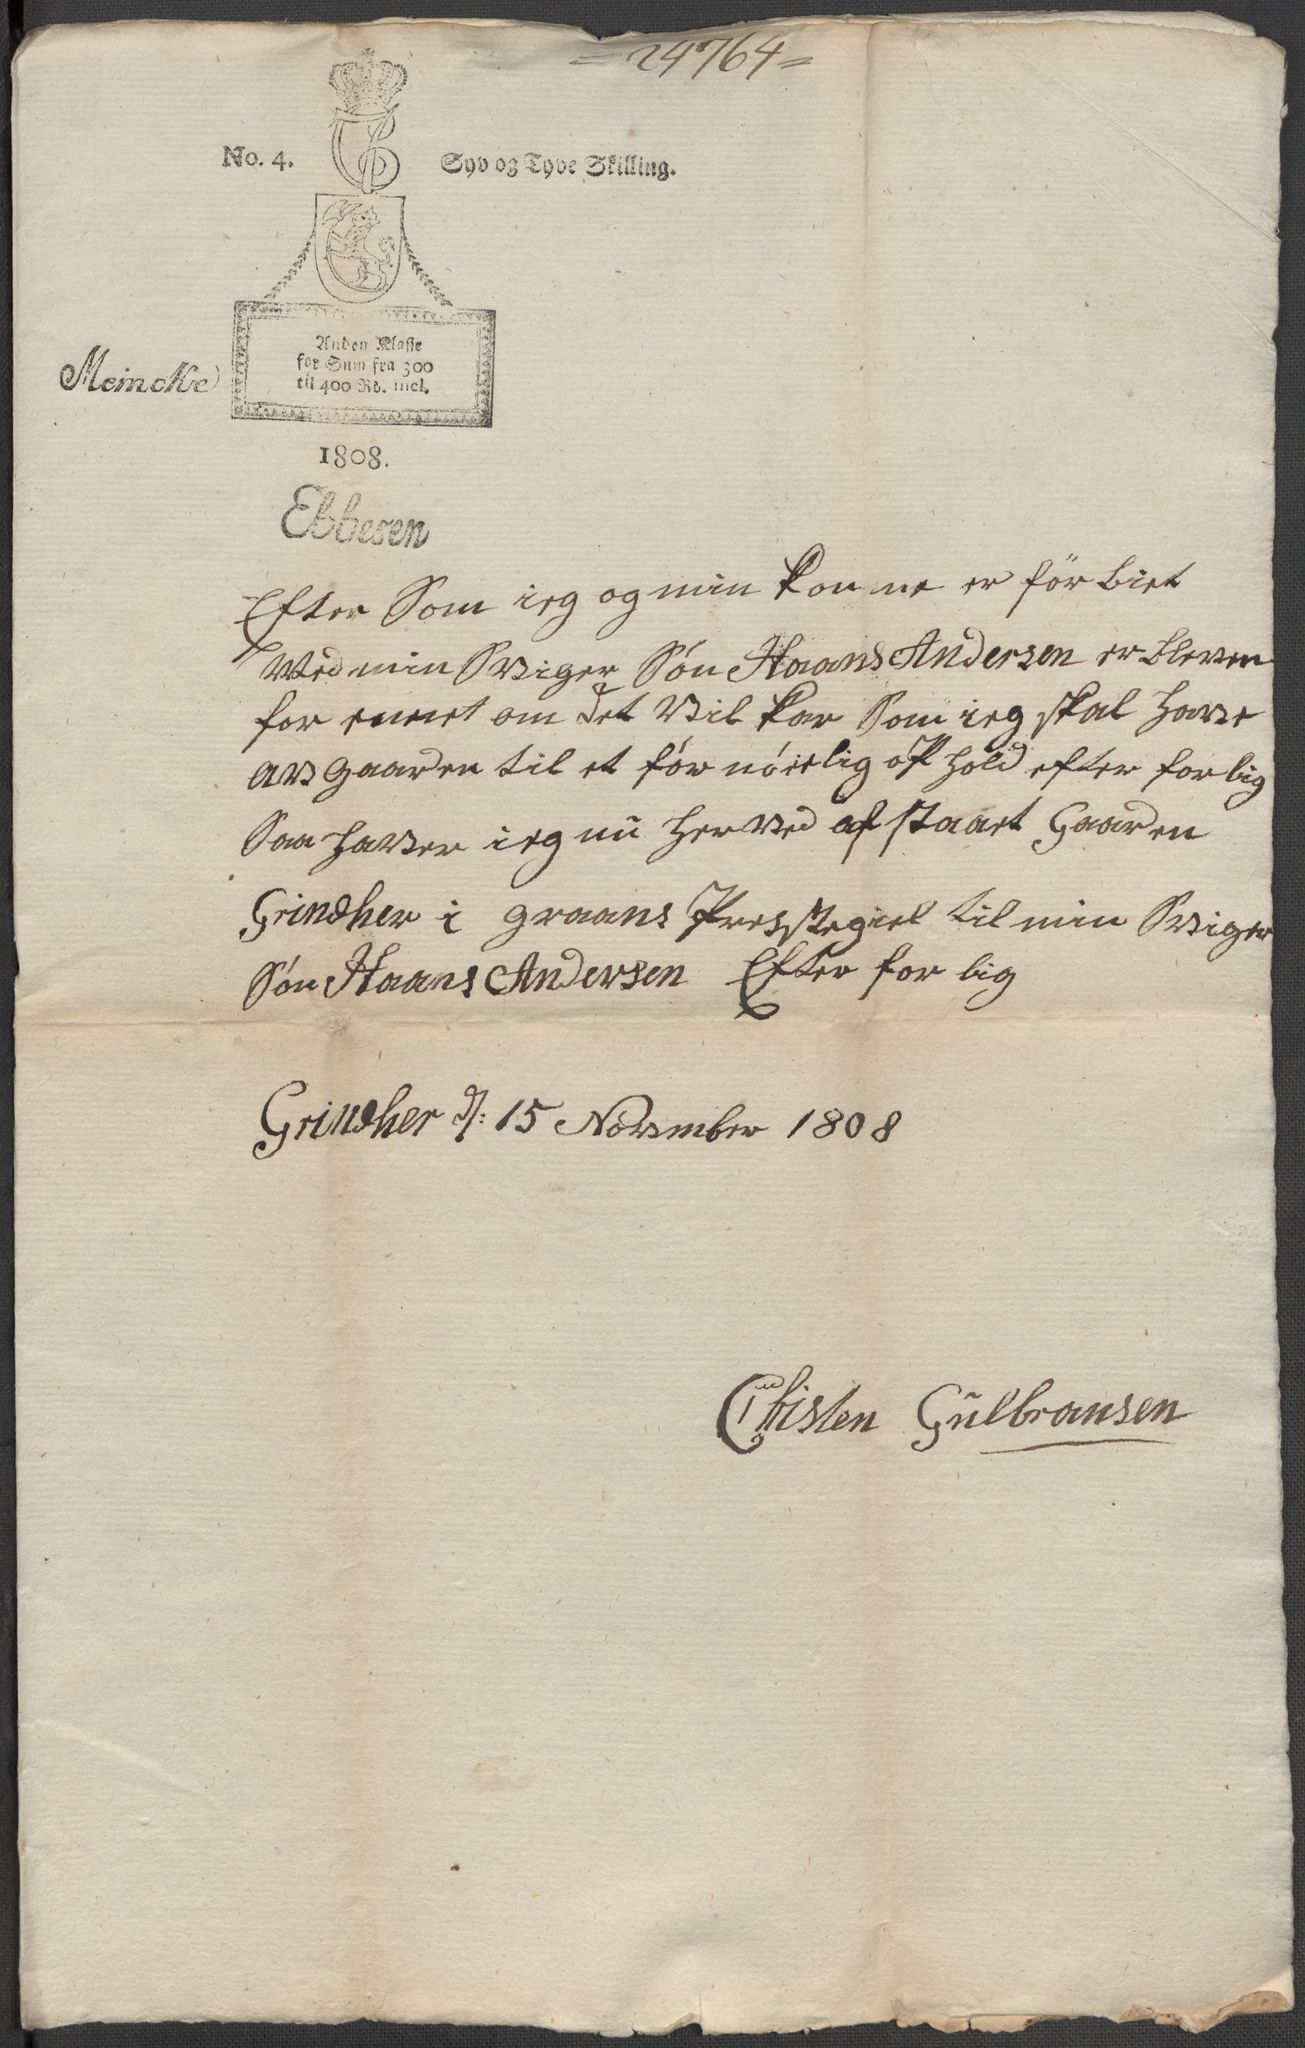 = 24764 =
No. 4.
Syv og Tyve Skilling.
Anden Klasse
for Sum fra 300
til 400 Rd. incl.
Meincke
1808.
Ebbesen
Efter Som ieg og min konne er för
Ved min Sviger Søn Haans Andersen er bleven
for eenet om det Vil kar Som ieg skal have
av gaarden til et før nöielig op hold efter for lig
Saa haver ieg nü her ved af staaet Gaarden
Grindher i graans Presstegiel til min Sviger
Søn Haans Andersen Efter for lig
Grindher d: 15 November 1808
Christen Gülbransen